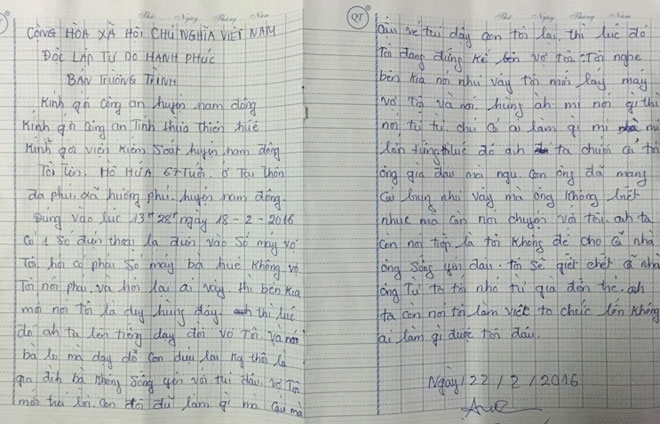 Thứ Ngày Tháng Năm
CỘNG HÒA XÃ HỘI CHỦ NGHĨA VIỆT NAM
ĐỘC LẬP TỰ DO HẠNH PHÚC
BẢN TRƯỜNG TRÌNH
Kính gởi công an huyện nam đông
Kính gởi công an Tỉnh thừa thiên huế
Kính gởi viện Kiểm Soát huyện nam đông
Tôi tên. HỒ HỨA 67 Tuổi. ở Tại thôn
đa phú. xã hương phú. huyện nam đông.
Đúng vào lúc 13H 28' ngày 18 - 2 - 2016
Có 1 Số điện thoại lạ điện vào Số máy vợ
Tôi. hỏi có phải Số máy bà huê không. vợ
Tôi nói phải. và hỏi lại ai vậy. thì bên kia
mới nói tôi là duy hùng đây. thì lúc
đó anh ta lớn tiếng dạy đời vợ Tôi. và nói
bà lo mà dạy dỗ con dựu lại
gia đình bà không sống yên với tui đâu. vợ Tôi
mới trả lời. con tôi đã làm gì mà cậu mà
QT
Thứ Ngày Tháng Năm
cần về tui dảy con tôi lại thì lúc đó
Tôi đang đứng kế bên vợ tôi. Tôi nghe
bên kia nói như vậy tôi mới lấy máy
vợ Tôi và nói. hùng ành. mi nói gì thì
nói từ từ. chứ có ai làm gì mi mà mi
lớn tiếng. lúc đó anh ta chưởi cả tôi
ông già đầu mà ngu. con ông đã mang
cái như vậy mà ông không biết
nhục mà còn nói chuyện với tôi. anh ta
còn nói tiếp là tôi không để cho cả nhà
ông sống yên đâu. tôi sẽ giết chết cả nhà
ông từ to tới nhỏ từ già đến trẻ. anh
ta còn nói tôi làm việc to chức lớn không
ai làm gì được tôi đâu.
Ngày / 22 / 2 / 2016